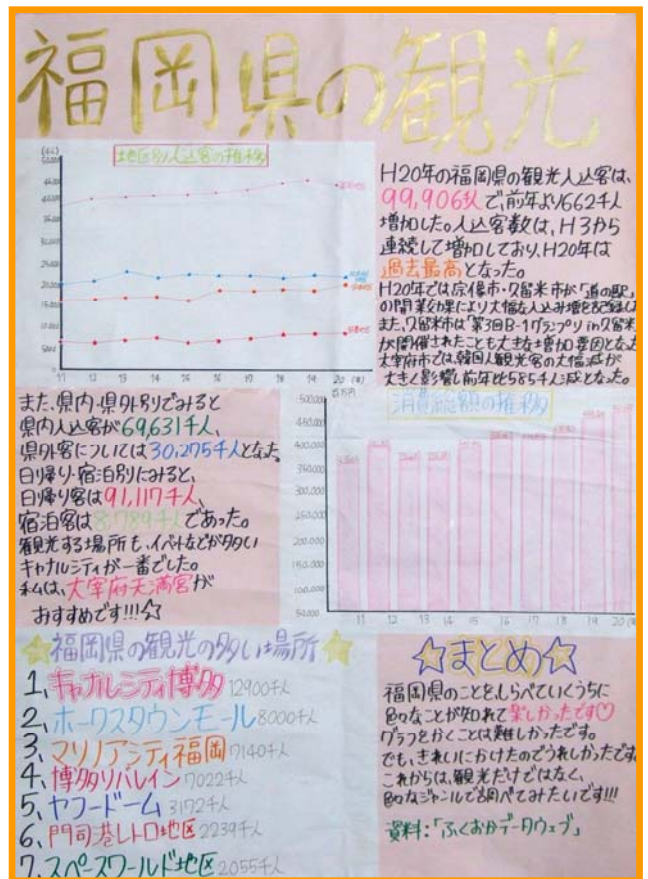 福岡県の観光
(千人)
地区別入込客の推移
50,000
45,000
40,000
35,000
30,000
25,000
20,000
15,000
10,000
5,000
0
11 12 13 14 15 16 17 18 19 20 (年)
H20年の福岡県の観光入込客は、
99,906千人で、前年より662千人
増加した。入込客数は、H3から
連続して増加しており、H20年は
過去最高となった。
H20年では宗像市・久留米市が「道の駅」
の開業効果により大幅な入込み増を記録し
また、久留米市は「第3回B-1グランプリin久留米
が開催されたことも大きな増加要因となった
太宰府市では、韓国人観光客の大幅減が
大きく影響し前年比585千人減となった。
また、県内・県外別でみると
県内入込客が69,631千人、
県外客については30,275千人となった。
日帰り・宿泊別にみると、
日帰り客は91,117千人、
宿泊客は8,789千人であった。
観光する場所も、イベントなどが多い
キャナルシティが一番でした。
私は、大宰府天満宮が
おすすめです!!!☆
百万円
消費総額の推移
500,000
450,000
400,000
350,000
300,000
250,000
200,000
150,000
100,000
50,000
11 12 13 14 15 16 17 18 19 20
☆福岡県の観光の多い場所☆
1、キャナルシティ博多 12900千人
2、ホークスタウンモール 8000千人
3、マリノアシティ福岡 7140千人
4、博多リバレイン 7022千人
5、ヤフードーム 3172千人
6、門司港レトロ地区 2239千人
7、スペースワールド地区 2055千人
☆まとめ☆
福岡県のことをしらべていくうちに
色々なことが知れて楽しかったです♡
グラフをかくことは難しかったです。
でも、きれいにかけたのでうれしかったです。
これからは、観光だけではなく、
色々なジャンルで調べてみたいです!!!
資料:「ふくおかデータウェブ」